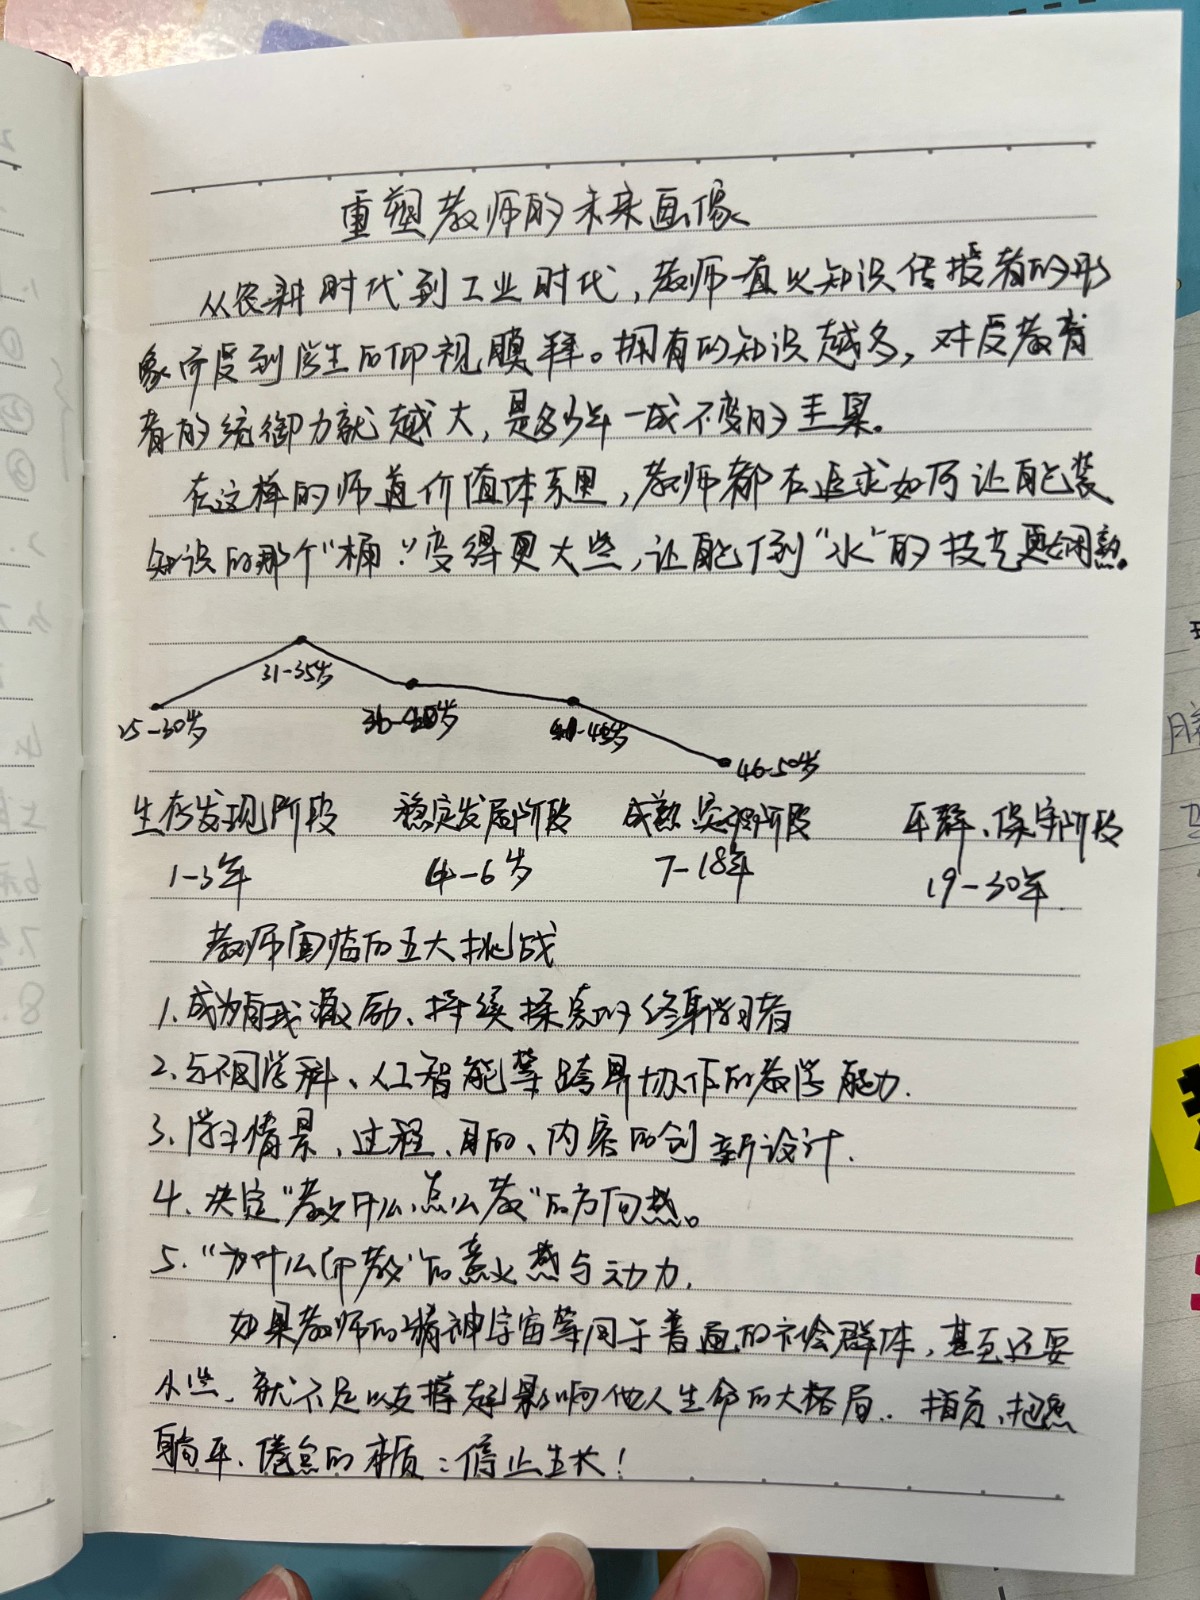 重塑教师的未来画像
从农耕时代到工业时代,教师一直以知识传授者的形
象而受到学生的仰视膜拜。拥有的知识越多,对受教育
者的统御力就越大,是多少年一成不变的王冠。
在这样的师道价值体系里,教师都在追求如何让自己装
知识的那个"桶"变得更大些,让自己倒"水"的技艺更娴熟。
25-30岁
31-35岁
36-40岁
41-45岁
46-50岁
生存发现阶段 稳定发展阶段 成熟 阶段 平静、保守阶段
1-3年 4-6岁 7-18年 19-30年
教师面临的五大挑战
1.成为自我激励、持续探索的终身学习者
2.与不同学科、人工智能等跨界协作的教学能力.
3.学习情景、过程、目的、内容的创新设计.
4.决定"教什么、怎么教"的方向感。
5."为什么而教"的意义感与动力.
如果教师的精神宇宙等同于普通的社会群体,甚至还要
小些,就不足以支撑起影响他人生命的大格局.
躺平、倦怠的本质:停止生长!